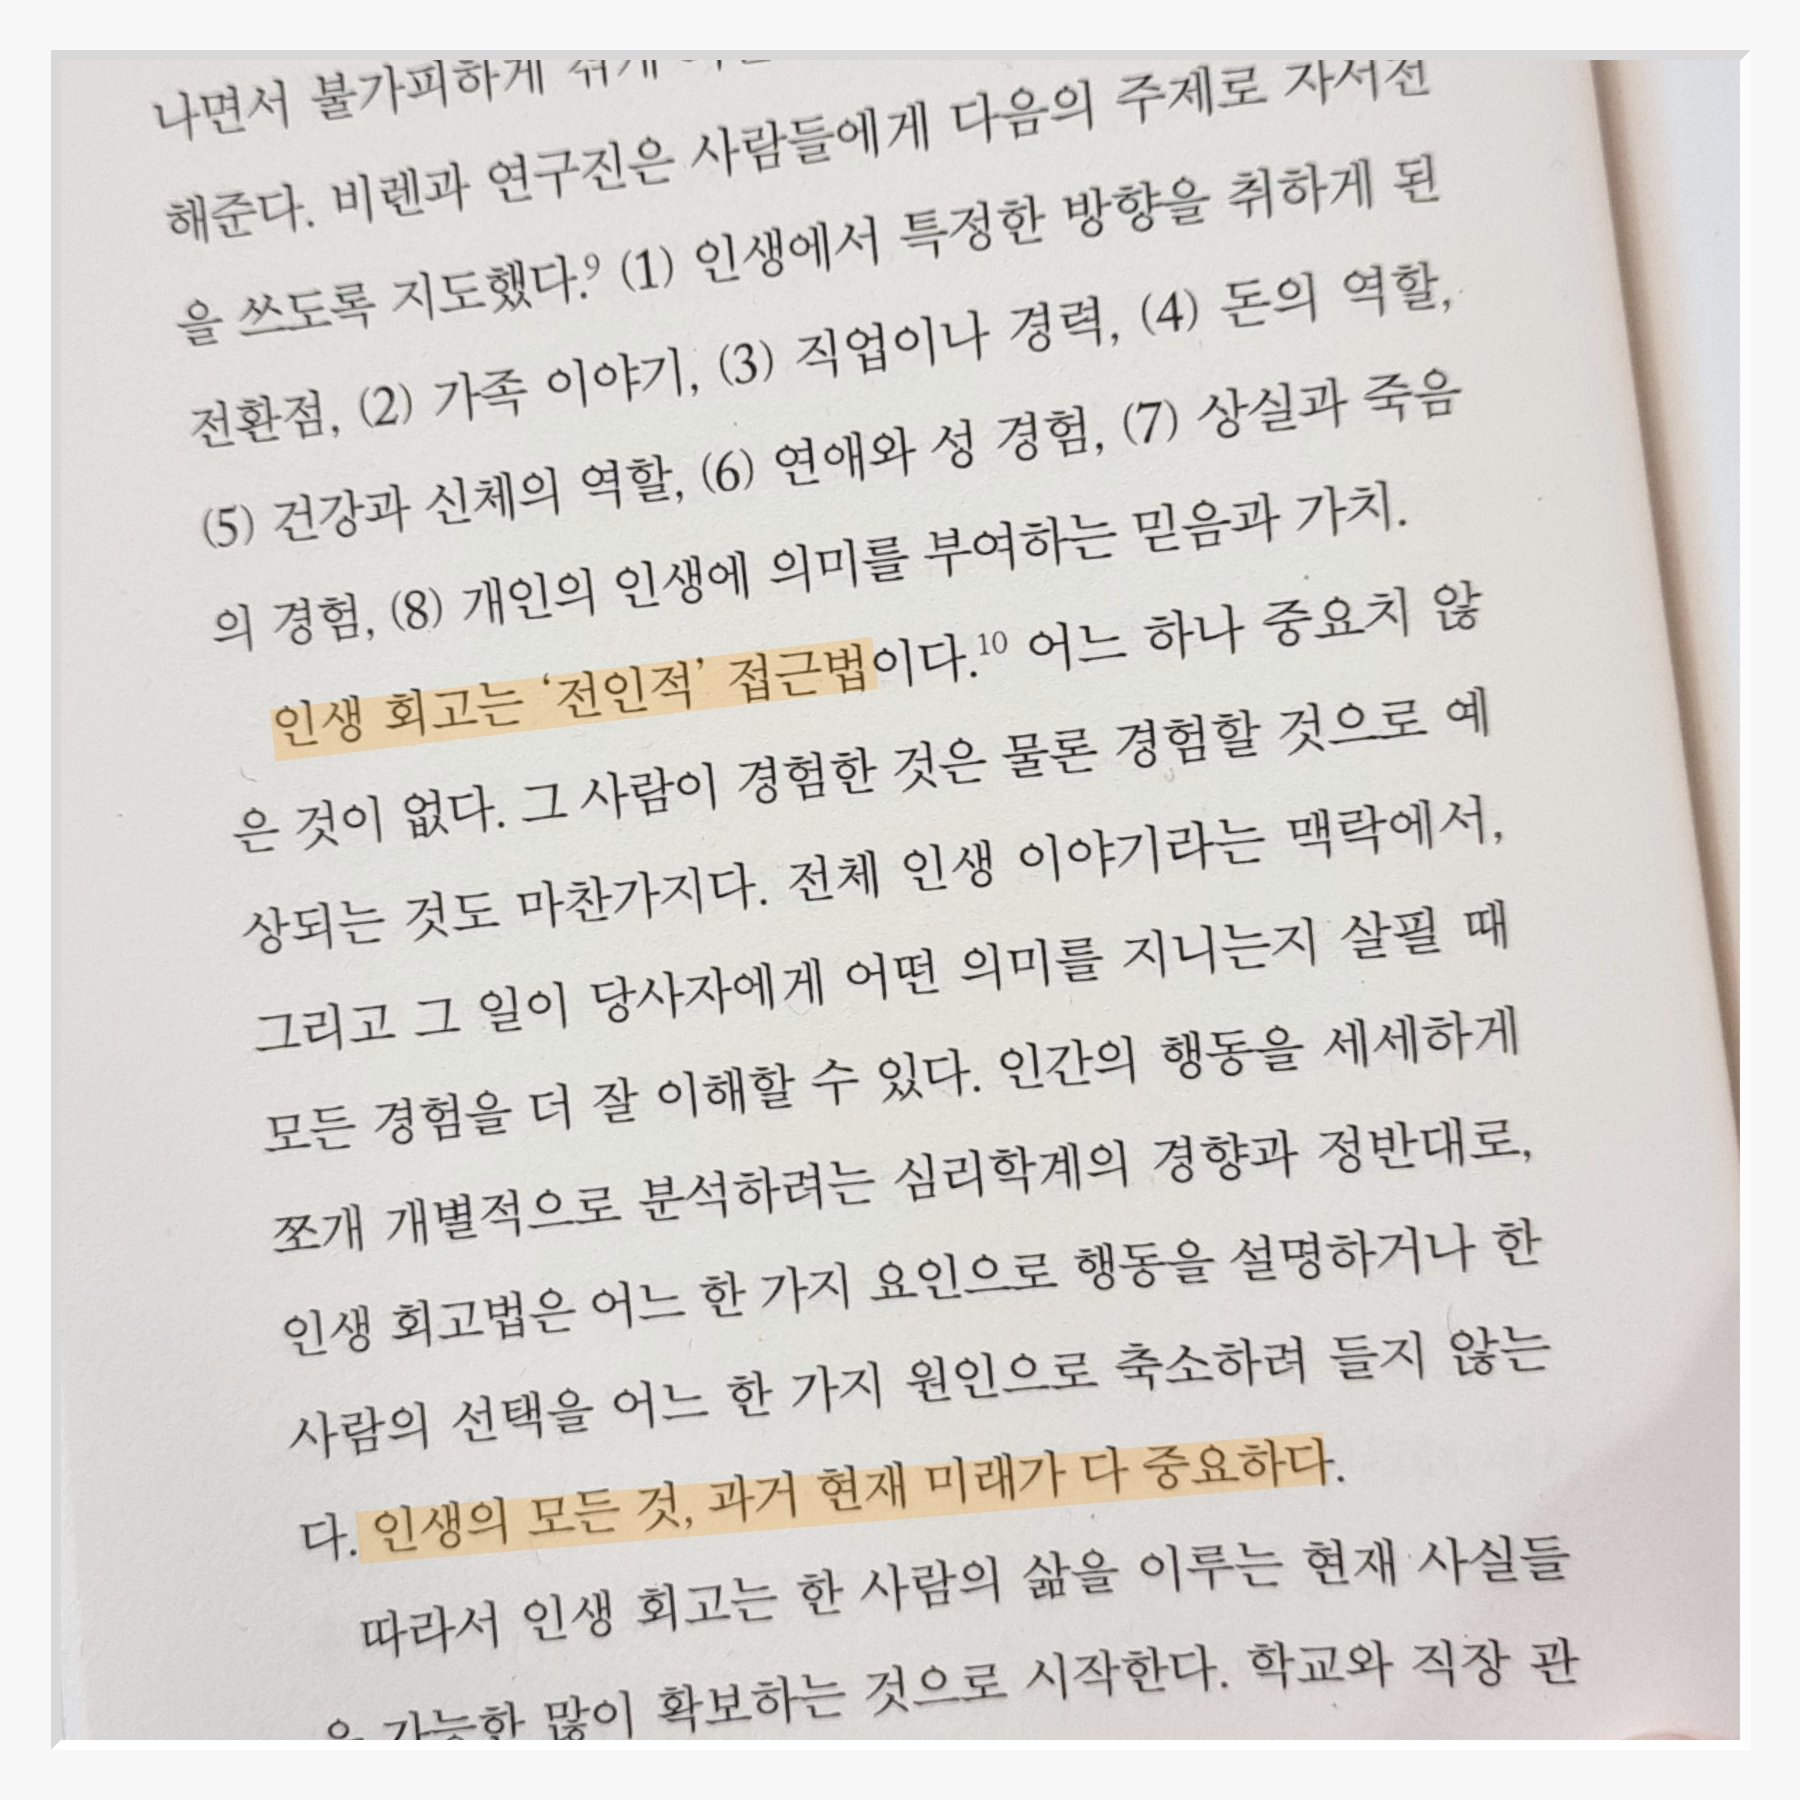 나면서 불가피하게 겪게
해준다. 비렌과 연구진은 사람들에게 다음의 주제로 자서전
을 쓰도록 지도했다.9 (1) 인생에서 특정한 방향을 취하게 된
전환점, (2) 가족 이야기, (3) 직업이나 경력, (4) 돈의 역할,
(5) 건강과 신체의 역할, (6) 연애와 성 경험, (7) 상실과 죽음
의 경험, (8) 개인의 인생에 의미를 부여하는 믿음과 가치.
인생 회고는 ‘전인적’ 접근법이다.10 어느 하나 중요치 않
은 것이 없다. 그 사람이 경험한 것은 물론 경험할 것으로 예
상되는 것도 마찬가지다. 전체 인생 이야기라는 맥락에서,
그리고 그 일이 당사자에게 어떤 의미를 지니는지 살필 때
모든 경험을 더 잘 이해할 수 있다. 인간의 행동을 세세하게
쪼개 개별적으로 분석하려는 심리학계의 경향과 정반대로,
인생 회고법은 어느 한 가지 요인으로 행동을 설명하거나 한
사람의 선택을 어느 한 가지 원인으로 축소하려 들지 않는
다. 인생의 모든 것, 과거 현재 미래가 다 중요하다.
따라서 인생 회고는 한 사람의 삶을 이루는 현재 사실들
을 가능한 많이 확보하는 것으로 시작한다. 학교와 직장 관